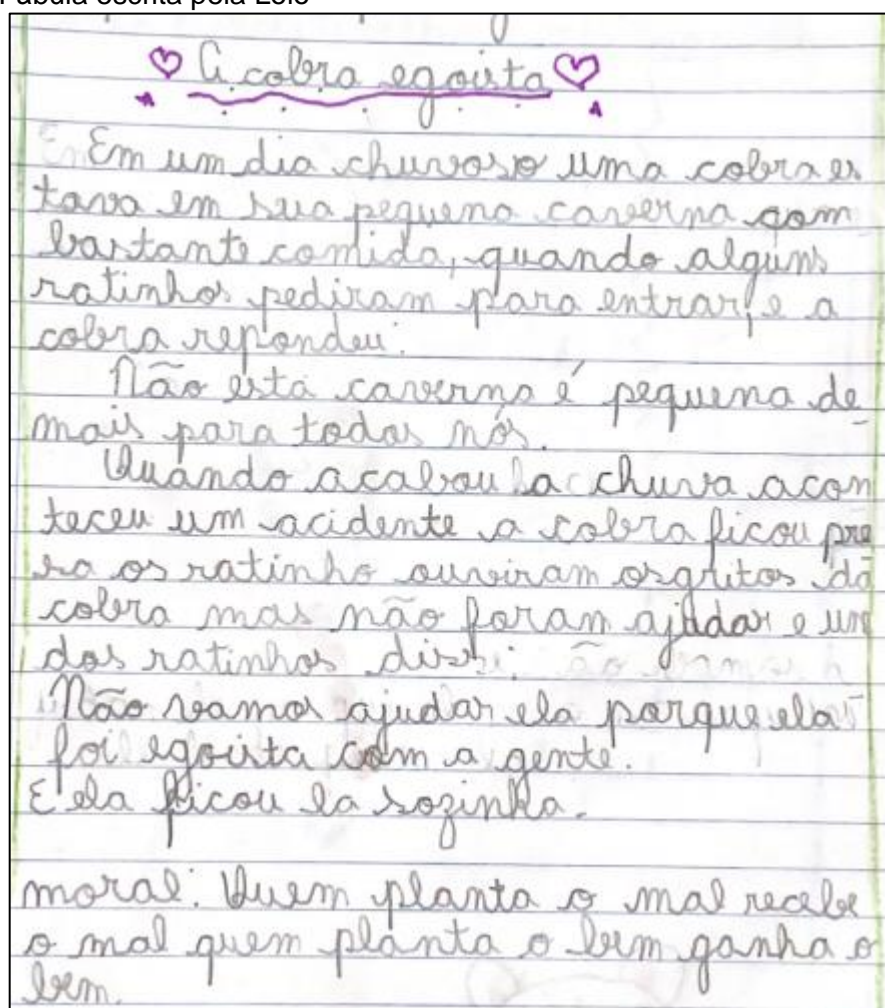 Fábula escrita pela Lolo
A cobra egoista
Em um dia chuvoso uma cobra es
tava em sua pequena caverna com
bastante comida, quando alguns
ratinhos pediram para entrar, e a
cobra repondeu:
Não esta caverna é pequena de
mais para todos nós.
Quando acabou a chuva acon
teceu um acidente a cobra ficou pre
sa os ratinho ouviram os gritos da
cobra mas não foram ajudar e um
dos ratinhos disse:
Não vamos ajudar ela porque ela
foi egoista com a gente.
E ela ficou la sozinha.
moral: Quem planta o mal recebe
o mal quem planta o bem ganha o
bem.